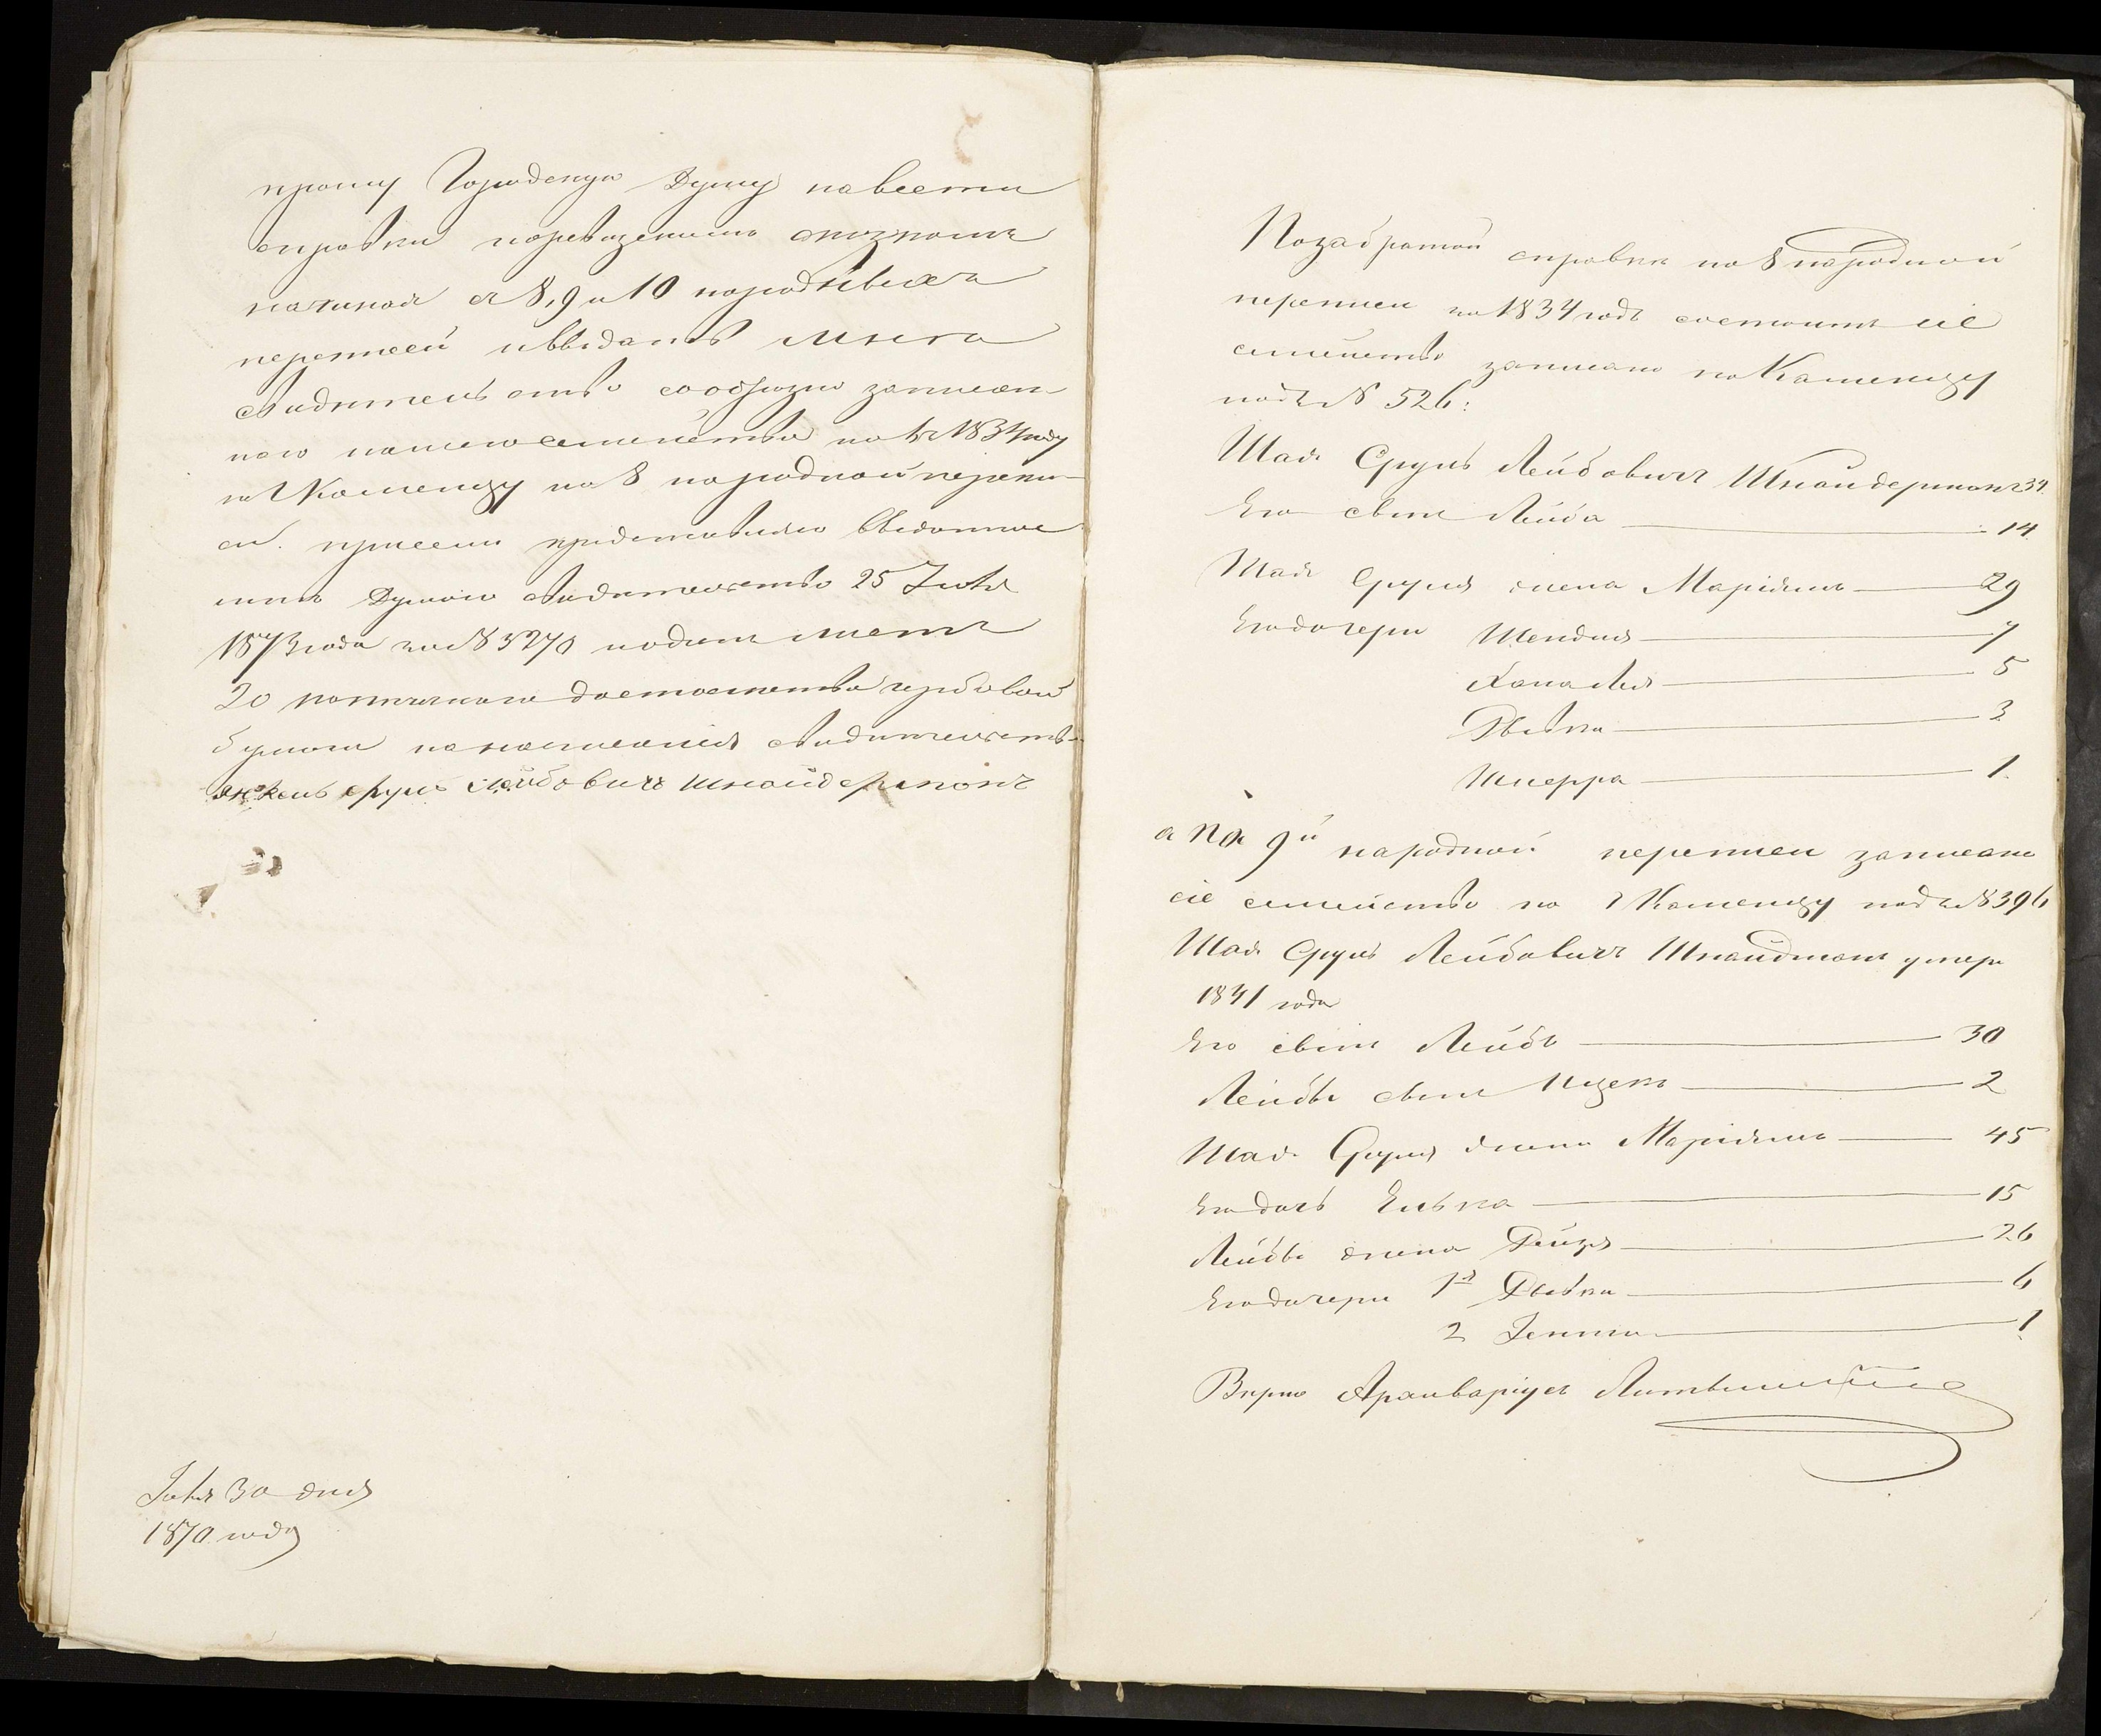 прошу Городскую Думу навести
справки по ревизскимъ сказкамъ
начиная съ 8, 9 и 10 народныхъ
переписей и выдать мнѣ
свидѣтельство сообразно записан-
ного нашего семейства по 1834 году
по г Каменцу по 8 народной перепи-
си. при семъ представляю выданное
мнѣ Думою свидѣтельство 25 Июля
1870 года за № 3270 и одинъ листъ
20 копѣечнаго достоинства гербовой
бумаги на написанія свидѣтельства
Сруль Лейбовичъ Шнайдерманъ
Іюля 30 дня
1870 года
По забратой справкѣ по 8 народной
переписи за 1834 годъ состоитъ сіе
семейство записано по Каменцу
подъ № 526:
Шая Сруль Лейбовичъ Шнайдерманъ 34
Его сынъ Лейба 14
Шаи Сруля жена Маріямъ 29
Его дочери Шендля 7
Хана Лея 5
Рывка 3
Шперра 1
а по 9й народной переписи записано
сіе семейство по г Каменцу подъ № 396
Шая Сруль Лейбовичъ Шнайдманъ умеръ
1841 года
Его сынъ Лейба 30
Лейбы сынъ Ицекъ 2
Шаи Сруля жена Маріямъ 45
Его дочь Елька 15
Лейбы жена Рейзя 26
Его дочери 1я Рывка 6
2 Гентя 1
Вѣрно Архиваріусъ